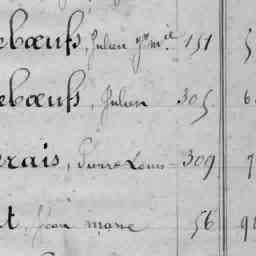 ebœufs, Julien 151
ebœufs, Julien 305
erais, Pierre Louis 309
t, Jean marie 56